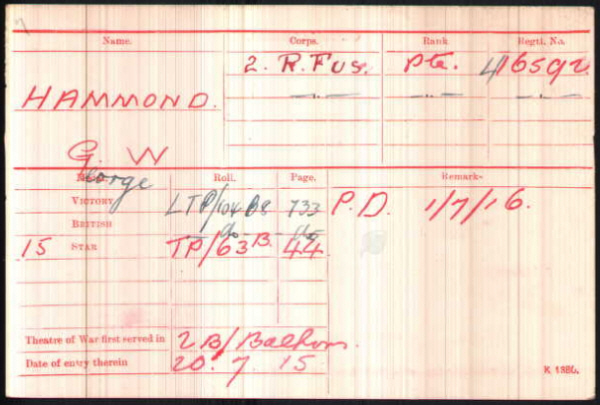 Name. Corps. Rank Regtl. No.
HAMMOND. 2. R. Fus. Pte. 16592
—"— —"—
G. W
George
Roll. Page. Remarks
VICTORY LTP/104 B8 733 P.D. 1/7/16.
BRITISH do do
15 STAR TP/63 B. 44
Theatre of War first served in 2B/Balkans.
Date of entry therein 20.7.15
K 1380.